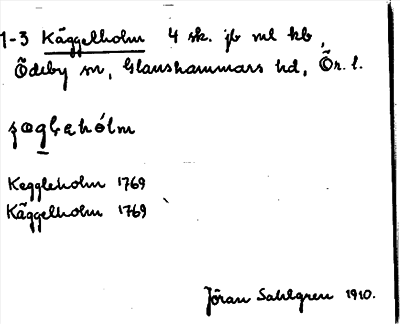 1-3 Käggelholm 4 sk. jb ml kb,
Ödeby sn, Glanshammars hd, Ör. l.
Keggleholm 1769
Käggelholm 1769
Jöran Sahlgren 1910.